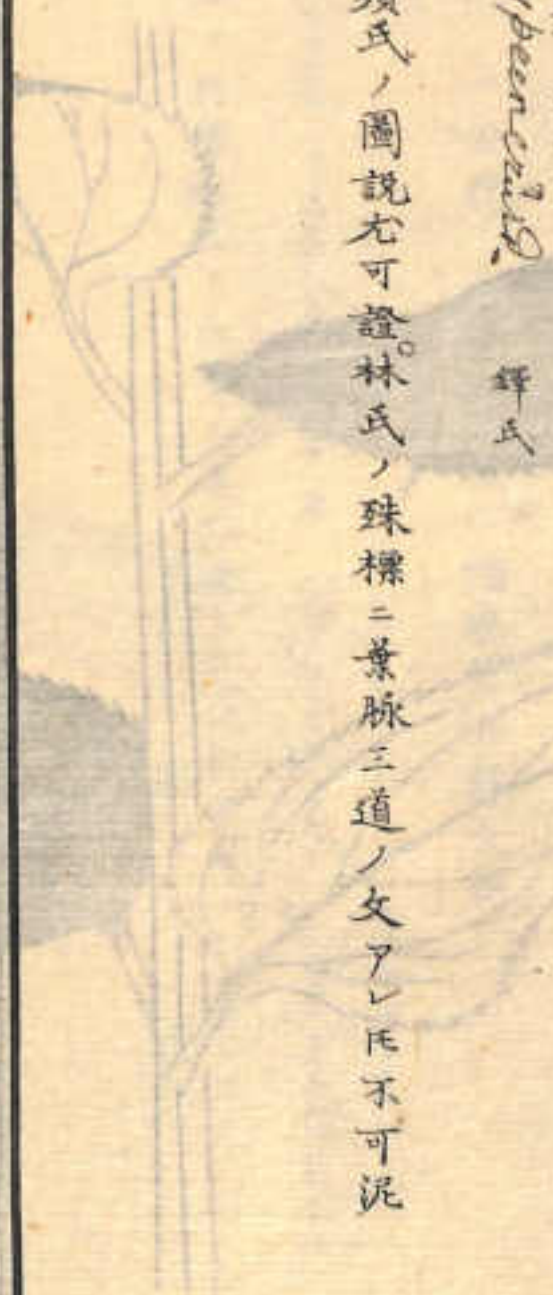 鐸氏
氏ノ圖説尤可證。林氏ノ殊標ニ葉脉三道ノ文アレ𪜈不可泥